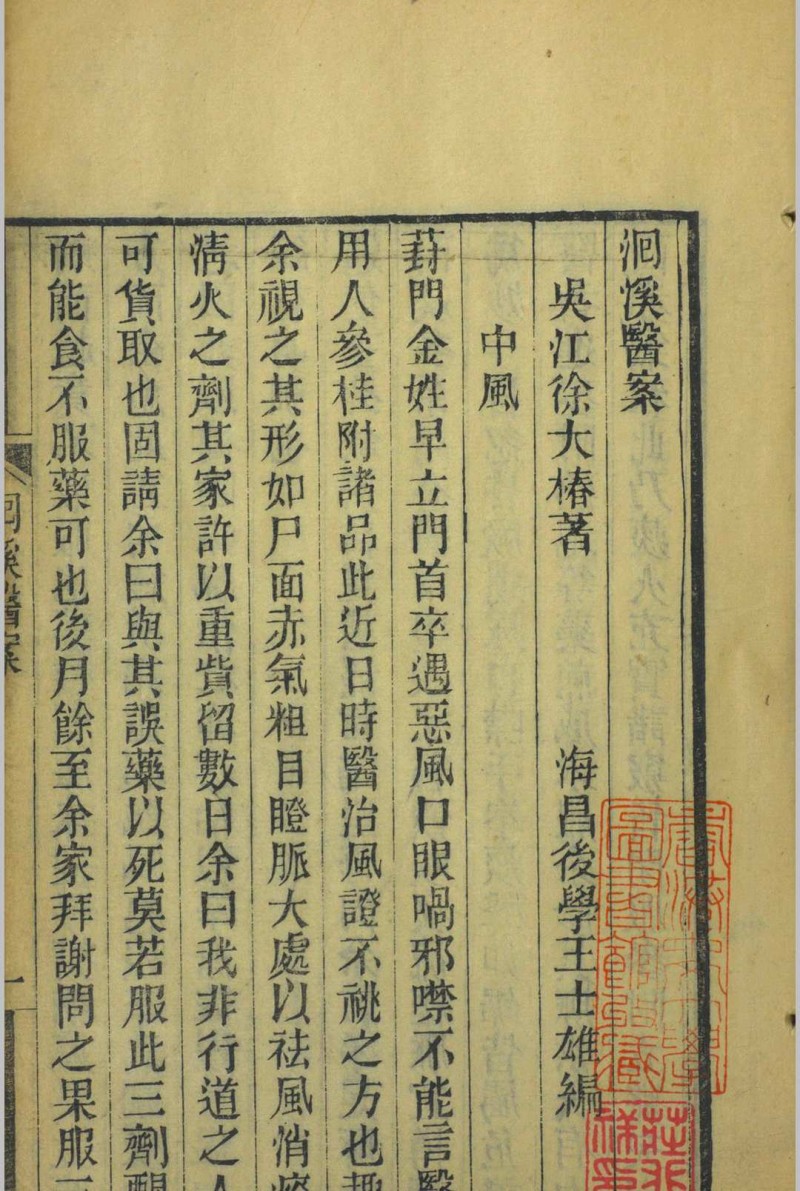 洄溪醫案
吳江徐大椿著 海昌後學王士雄編
中風
葑門金姓早立門首卒遇惡風口眼喎邪噤不能言醫
用人參桂附諸品此近日時醫治風證不祧之方也趣
余視之其形如尸面赤氣粗目瞪脈大處以祛風消痰
清火之劑其家許以重貲留數日余曰我非行道之人
可貨取也固請余曰與其誤藥以死莫若服此三劑醒
而能食不服藥可也後月餘至余家拜謝問之果服三
洄溪醫案
一